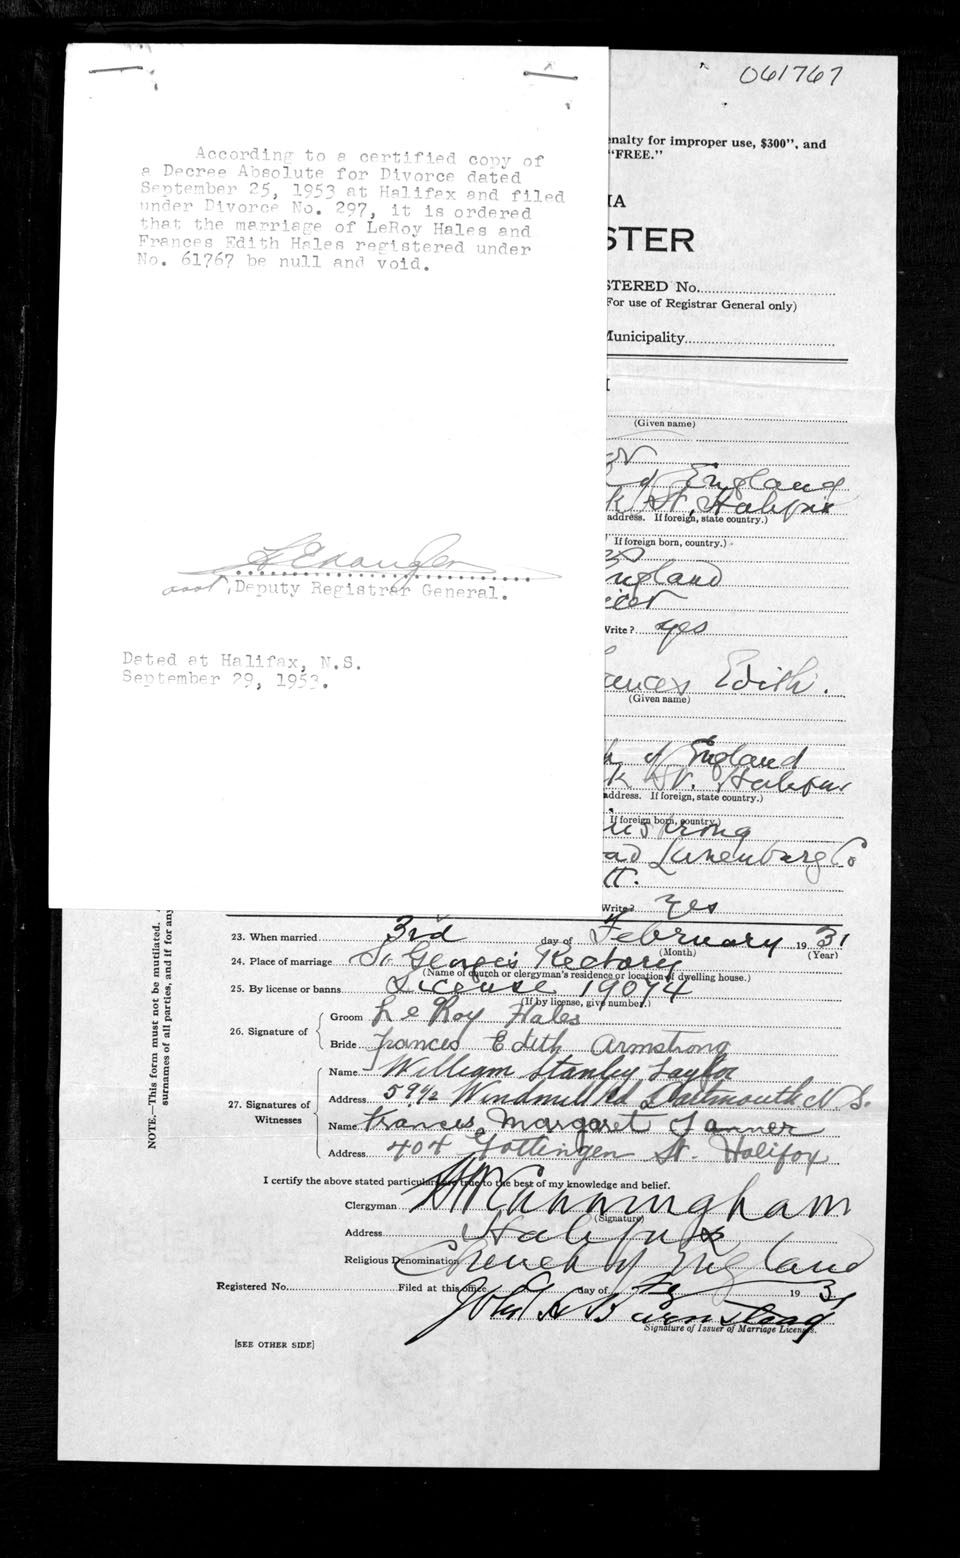 061767
According to a certified copy of
a Decree Absolute for Divorce dated
September 25, 1953 at Halifax and filed
under Divorce No. 297, it is ordered
that the marriage of LeRoy Hales and
Frances Edith Hales registered under
No. 61767 be null and void.
asst. Deputy Registrar General.
Dated at Halifax, N.S.
September 29, 1953.
enalty for improper use, $300", and
"FREE."
IA
STER
STERED No.
For use of Registrar General only)
Municipality
(Given name)
of England
k St, Halifax
address. If foreign, state country.)
If foreign born, country.)
ngland
Write? yes
ances Edith.
(Given name)
h of England
k St. Halifax
address. If foreign, state country.)
If foreign born, country.)
mstrong
ad Lunenburg Co
tt.
Write? Yes
NOTE.—This form must not be mutilated.
surnames of all parties, and if for any
23. When married 3rd day of February 1931
(Month) (Year)
24. Place of marriage St George's Rectory
(Name of church or clergyman's residence or location of dwelling house.)
25. By license or banns License 19074
(If by license, give number)
26. Signature of
Groom LeRoy Hales
Bride Frances Edith Armstrong
27. Signatures of Witnesses
Name William Stanley Taylor
Address 59½ Windmill Rd Dartmouth N.S.
Name Frances Margaret Tanner
Address 404 Gottingen St. Halifax
I certify the above stated particulars are true to the best of my knowledge and belief.
Clergyman Cunningham
(Signature)
Address Halifax
Religious Denomination Church of England
Registered No. Filed at this office day of 1931
Signature of Issuer of Marriage Licenses.
[SEE OTHER SIDE]